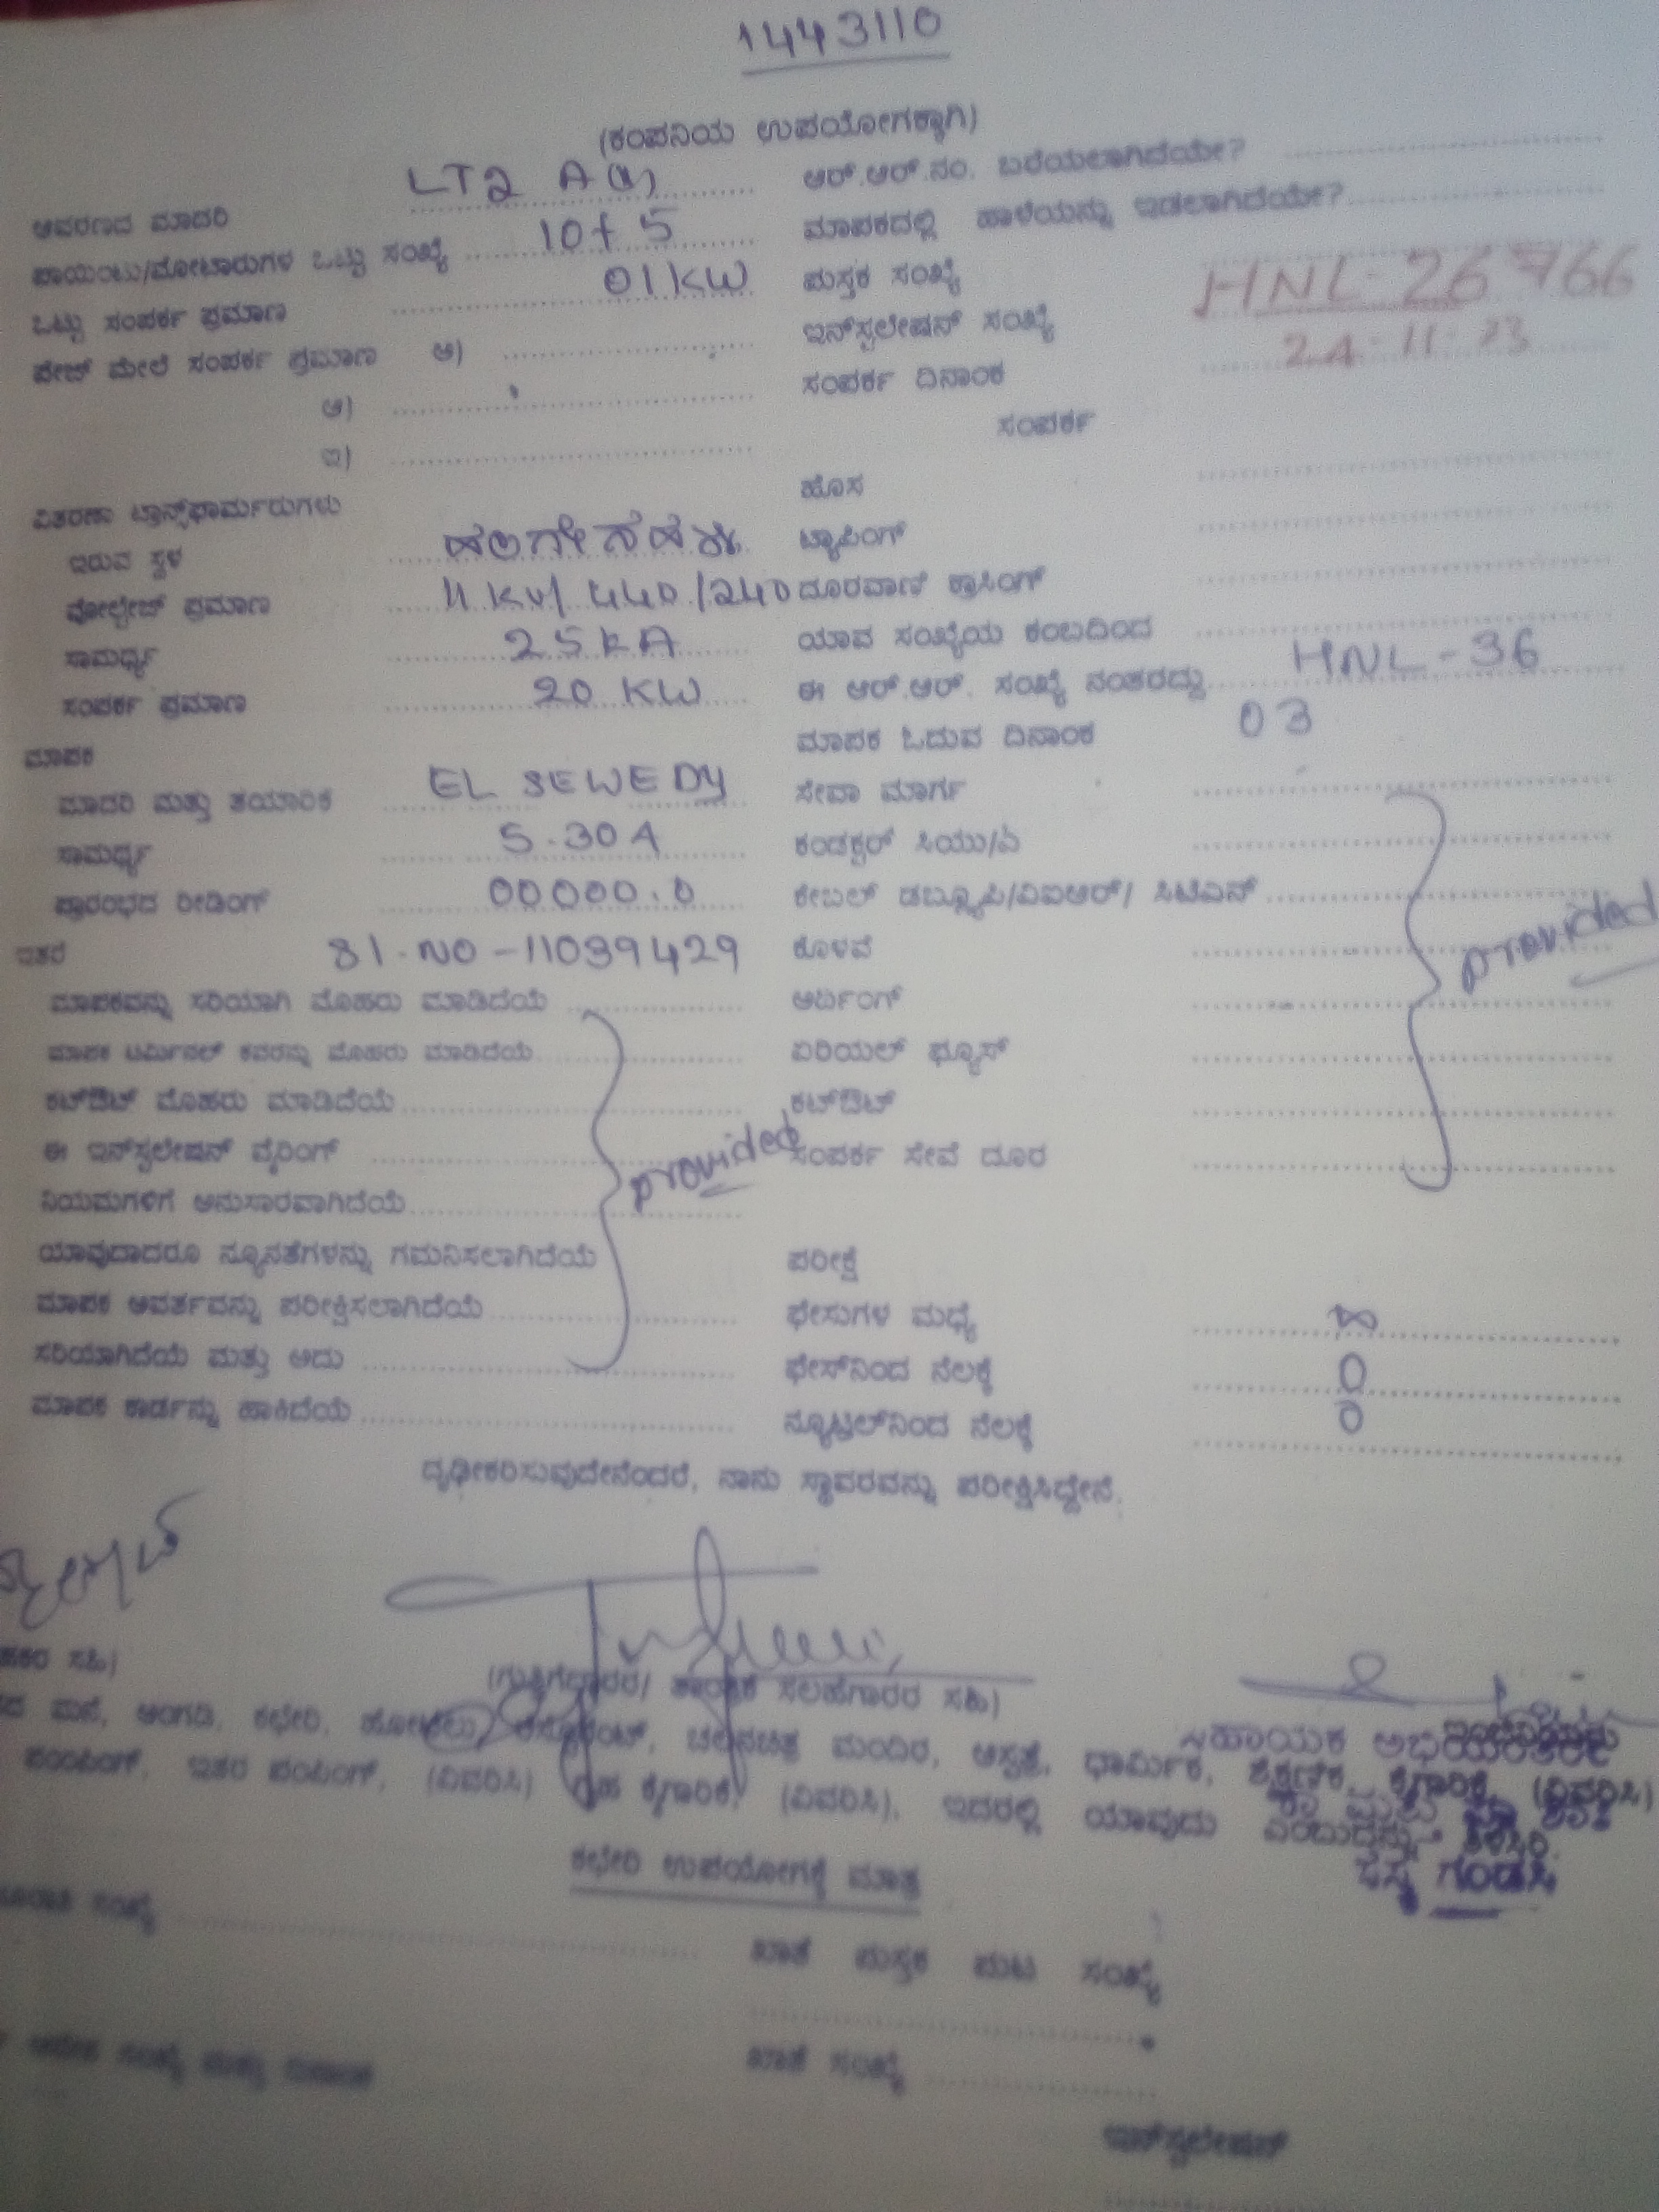 1443110
(ಕಂಪನಿಯ ಉಪಯೋಗಕ್ಕಾಗಿ)
ಆವರಣದ ಮಾದರಿ LT2 A
ಪಾಯಿಂಟು/ಮೋಟಾರುಗಳ ಒಟ್ಟು ಸಂಖ್ಯೆ 10+5
ಒಟ್ಟು ಸಂಪರ್ಕ ಪ್ರಮಾಣ 01KW
ಪೇಜ್ ಮೇಲೆ ಸಂಪರ್ಕ ಪ್ರಮಾಣ ಅ)
ಆ)
ಇ)
ವಿತರಣಾ ಟ್ರಾನ್ಸ್‌ಫಾರ್ಮರುಗಳು
ಇರುವ ಸ್ಥಳ
ವೋಲ್ಟೇಜ್ ಪ್ರಮಾಣ 11 KV/ 440/240
ಸಾಮರ್ಥ್ಯ 25 KA
ಸಂಪರ್ಕ ಪ್ರಮಾಣ 20 KW
ಮಾಪಕ
ಮಾದರಿ ಮತ್ತು ತಯಾರಿಕೆ EL SEWEDY
ಸಾಮರ್ಥ್ಯ 5-30A
ಪ್ರಾರಂಭದ ರೀಡಿಂಗ್ 00000.0
ಇತರೆ Sl-NO-11039429
ಮಾಪಕವನ್ನು ಸರಿಯಾಗಿ ಮೊಹರು ಮಾಡಿದೆಯೆ
ಮಾಪಕ ಟರ್ಮಿನಲ್ ಕವರನ್ನು ಮೊಹರು ಮಾಡಿದೆಯೆ
ಕಟ್‌ಔಟ್ ಮೊಹರು ಮಾಡಿದೆಯೆ
ಈ ಇನ್‌ಸ್ಟಲೇಷನ್ ವೈರಿಂಗ್
provided
ನಿಯಮಗಳಿಗೆ ಅನುಸಾರವಾಗಿದೆಯೆ
ಯಾವುದಾದರೂ ನ್ಯೂನತೆಗಳನ್ನು ಗಮನಿಸಲಾಗಿದೆಯೆ
ಮಾಪಕ ಆವರ್ತವನ್ನು ಪರೀಕ್ಷಿಸಲಾಗಿದೆಯೆ
ಸರಿಯಾಗಿದೆಯೆ ಮತ್ತು ಅದು
ಮಾಪಕ ಕಾರ್ಡನ್ನು ಹಾಕಿದೆಯೆ
ಆರ್.ಆರ್.ನಂ. ಬರೆಯಲಾಗಿದೆಯೇ?
ಮಾಪಕದಲ್ಲಿ ಹಾಳೆಯನ್ನು ಇಡಲಾಗಿದೆಯೇ?
ಪುಸ್ತಕ ಸಂಖ್ಯೆ
ಇನ್‌ಸ್ಟಲೇಷನ್ ಸಂಖ್ಯೆ HNL-26766
ಸಂಪರ್ಕ ದಿನಾಂಕ 24-11-23
ಸಂಪರ್ಕ
ಹೊಸ
ಟ್ಯಾಪಿಂಗ್
ದೂರವಾಣಿ ಕ್ರಾಸಿಂಗ್
ಯಾವ ಸಂಖ್ಯೆಯ ಕಂಬದಿಂದ
ಈ ಆರ್.ಆರ್. ಸಂಖ್ಯೆ ನಂತರದ್ದು HNL-36
ಮಾಪಕ ಓದುವ ದಿನಾಂಕ 03
ಸೇವಾ ಮಾರ್ಗ
ಕಂಡಕ್ಟರ್ ಸಿಯು/ಎ
ಕೇಬಲ್ ಡಬ್ಲ್ಯೂಪಿ/ವಿಐಆರ್/ ಸಿಟಿಎಸ್
provided
ಕೊಳವೆ
ಅರ್ದಿಂಗ್
ಏರಿಯಲ್ ಫ್ಯೂಸ್
ಕಟ್‌ಔಟ್
ಸಂಪರ್ಕ ಸೇವೆ ದೂರ
ಪರೀಕ್ಷೆ
ಫೇಸುಗಳ ಮಧ್ಯೆ ∞
ಫೇಸ್‌ನಿಂದ ನೆಲಕ್ಕೆ 0
ನ್ಯೂಟ್ರಲ್‌ನಿಂದ ನೆಲಕ್ಕೆ 0
ದೃಢೀಕರಿಸುವುದೇನೆಂದರೆ, ನಾನು ಸ್ಥಾವರವನ್ನು ಪರೀಕ್ಷಿಸಿದ್ದೇನೆ.
ಸಹಿ)
(ಗುತ್ತಿಗೆದಾರರ/ ಸಲಹೆಗಾರರ ಸಹಿ)
ಸಹಾಯಕ
ಮನೆ, ಅಂಗಡಿ, ಕಛೇರಿ, ಹೋಟೆಲು, ರೆಸ್ಟೋರೆಂಟ್, ಚಲನಚಿತ್ರ ಮಂದಿರ, ಆಸ್ಪತ್ರೆ, ಧಾರ್ಮಿಕ, ಶೈಕ್ಷಣಿಕ, ಕೈಗಾರಿಕೆ, (ವಿವರಿಸಿ)
ಪಂಪಿಂಗ್, ಇತರ ಪಂಪಿಂಗ್, (ವಿವರಿಸಿ) ಗೃಹ ಕೈಗಾರಿಕೆ, (ವಿವರಿಸಿ), ಇದರಲ್ಲಿ ಯಾವುದು ಎಂಬುದನ್ನು ತಿಳಿಸಿರಿ.
ಗಂಡಸಿ
ಕಛೇರಿ ಉಪಯೋಗಕ್ಕೆ ಮಾತ್ರ
ಸಂಖ್ಯೆ
ಖಾತೆ ಪುಸ್ತಕ ಪುಟ ಸಂಖ್ಯೆ
ಖಾತೆ ಸಂಖ್ಯೆ
ಇನ್‌ಸ್ಟಲೇಷನ್